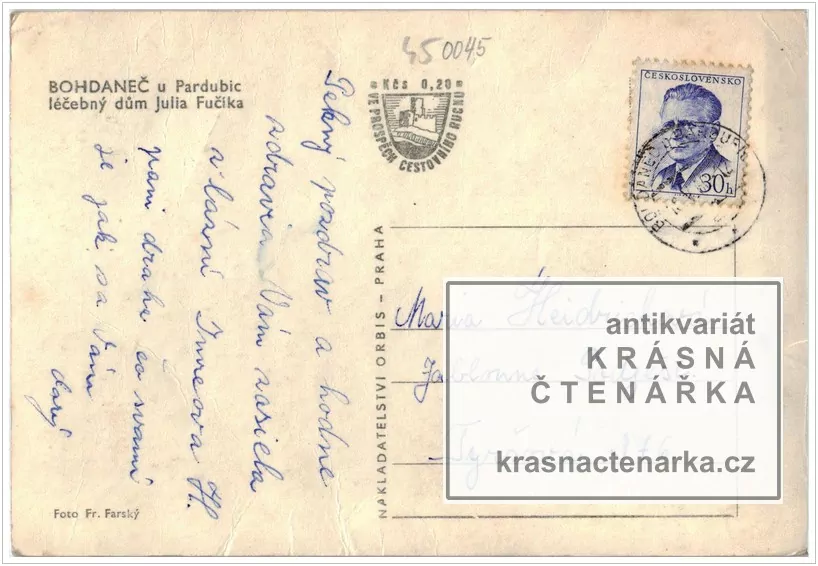 45 0045
BOHDANEČ u Pardubic
léčebný dům Julia Fučíka
Kčs 0,20
VE PROSPĚCH CESTOVNÍHO RUCHU
ČESKOSLOVENSKO
30h
Pekný pozdrav a hodne
zdravia Vám zasiela
z lázní H.
pani drahe čo
je jak sa Vám
darý
NAKLADATELSTVÍ ORBIS – PRAHA
Maria
antikvariát
KRÁSNÁ
ČTENÁŘKA
krasnactenarka.cz
Foto Fr. Farský